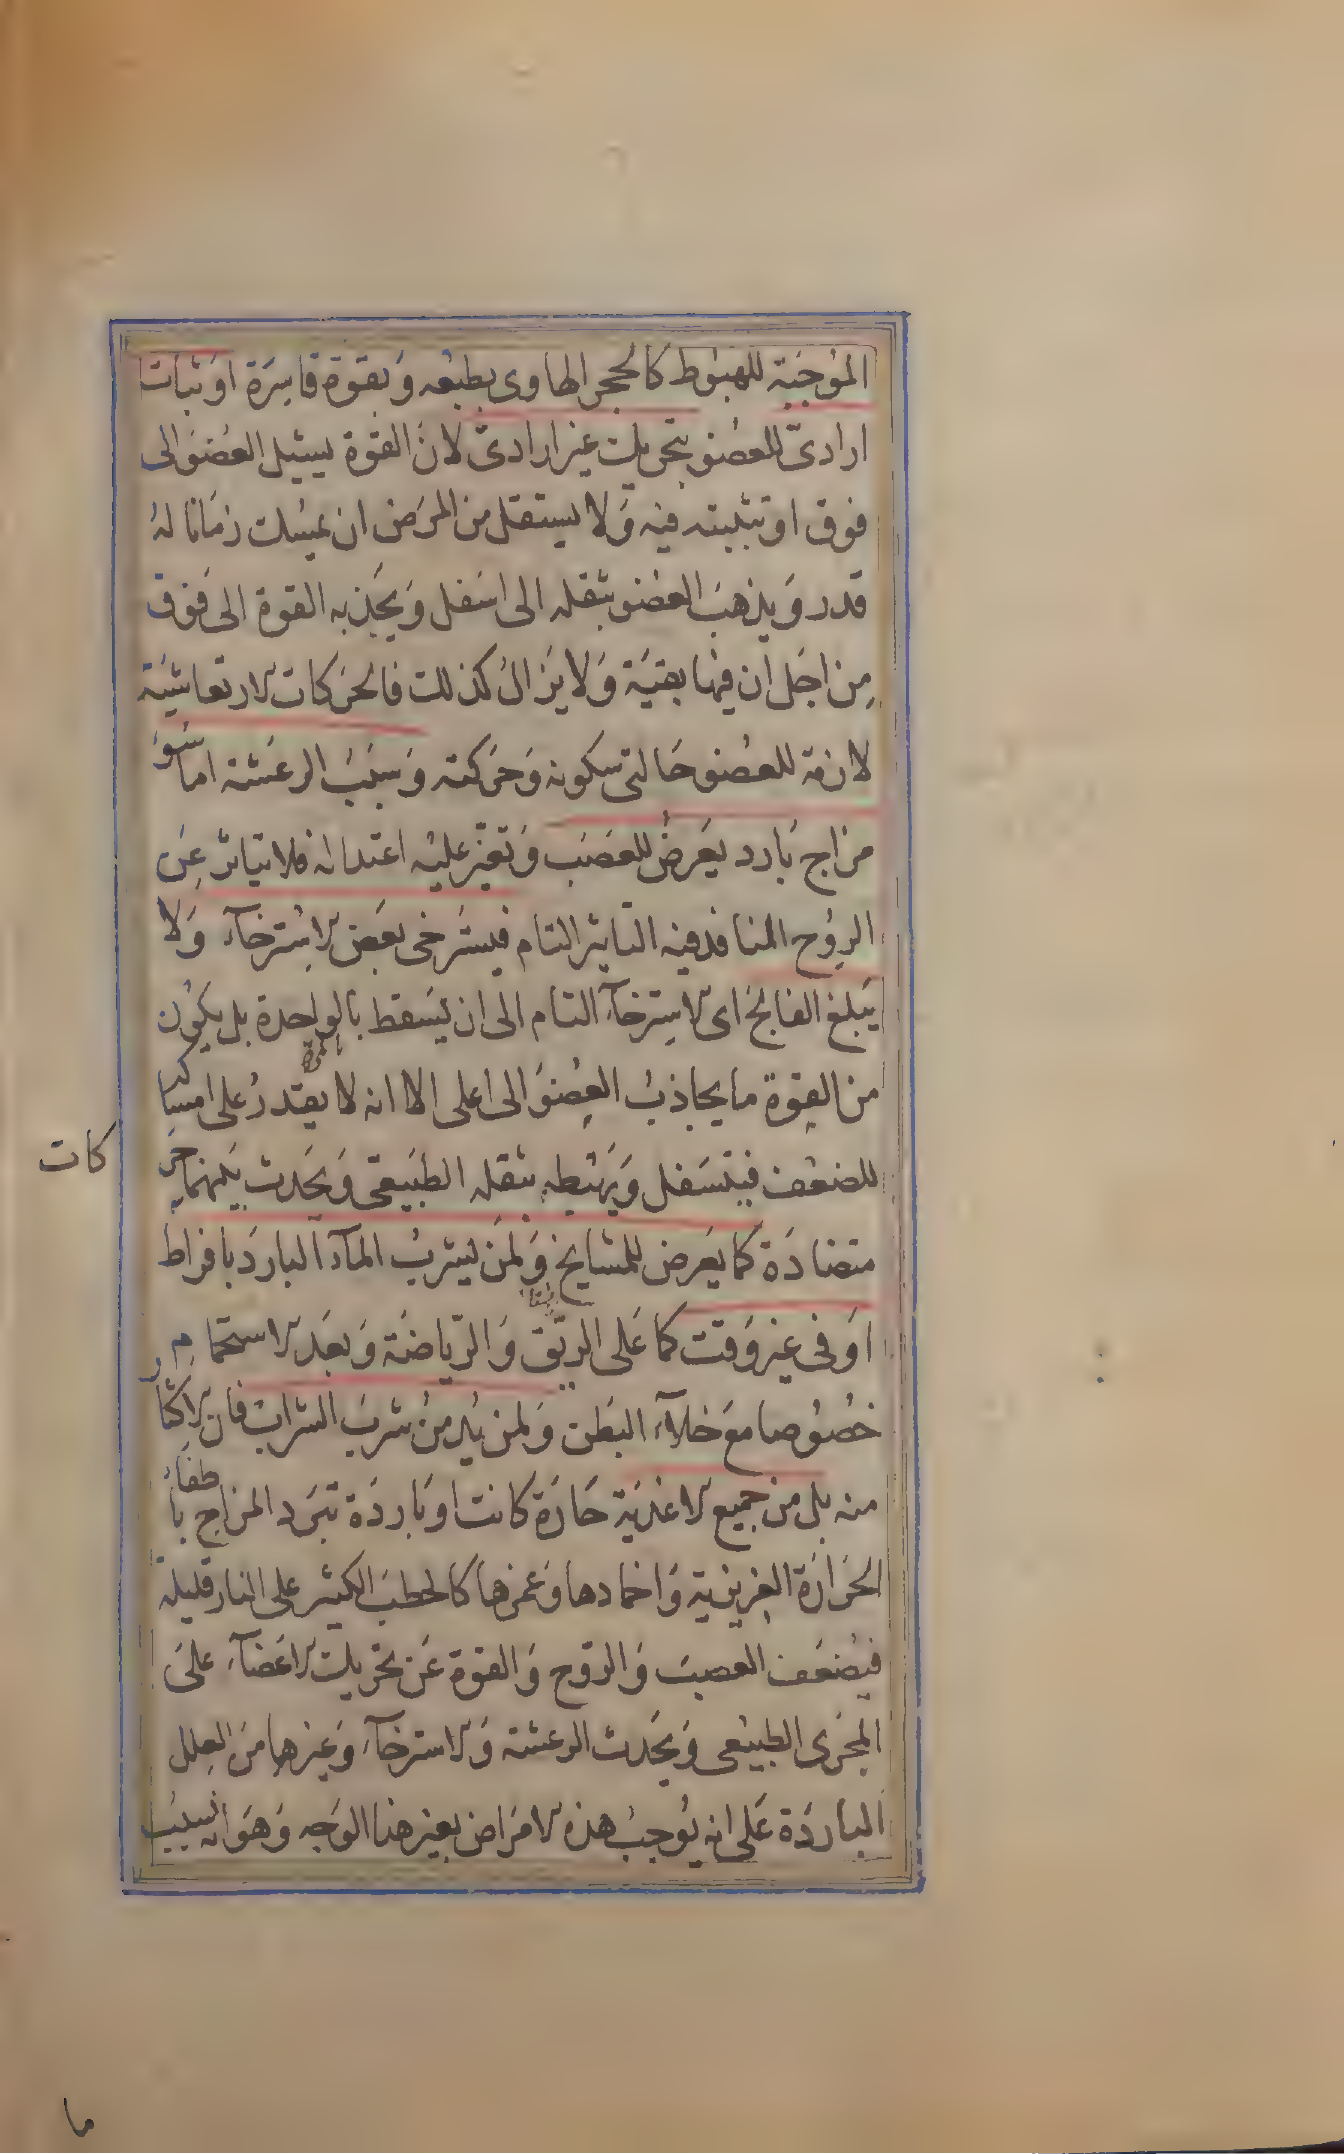 الموجبة للهبوط كالحجر الهاوى بطبعه وبقوة قاسرة او ثبات
ارادىّ للعضو بتحريك غير ارادىّ لانّ القوة يشيل العضو الى
فوق او تثبيته فيه ولا يستقل من المرض ان يمسك زمانا له
قدر ويذهب العضو بثقله الى اسفل ويجذبه القوة الى فوق
من اجل ان فيها بقية ولا يزال كذلك فالحركات الارتعاشية
لازمة للعضو حالتى سكونه وحركته وسبب الرعشة اما سوء
مزاج بارد يعرض للعصب وتغير عليه اعتداله فلا يتاثر عن
الروح المنافذ فيه التاثر التام فيسترخى بعض الاسترخآء ولا
يبلغ الفالج اى الاسترخآء التام الى ان يسقط بالواحدة بل يكون
بالمرة
من القوة ما يجاذب العضو الى اعلى الا انه لا يقدر على امساكه
للضعف فيتسفل ويهبطه بثقله الطبيعى ويحدث بينهما حر
كات
متضادة كما يعرض للمشايخ ولمن يشرب المآء البارد بافراط
او فى غير وقت كما على الريق والرّياضة وبعد الاستحمام
خصوصا مع خلآء البطن ولمن يدمن شرب الشراب فان الاكثار
منه بل من جميع الاغذية حارة كانت او باردة تبرد المزاج باطفاء
الحرارة الغريزية واخمادها وغمرها كالحطب الكثير على النار قليلة
فيضعف العصب والروح والقوة عن تحريك الاعضآء على
المجرى الطبيعى ويحدث الرعشة والاسترخآء وغيرهما من العلل
الباردة على انه يوجب هذه الامراض بغير هذا الوجه وهو انه يسبب
ما